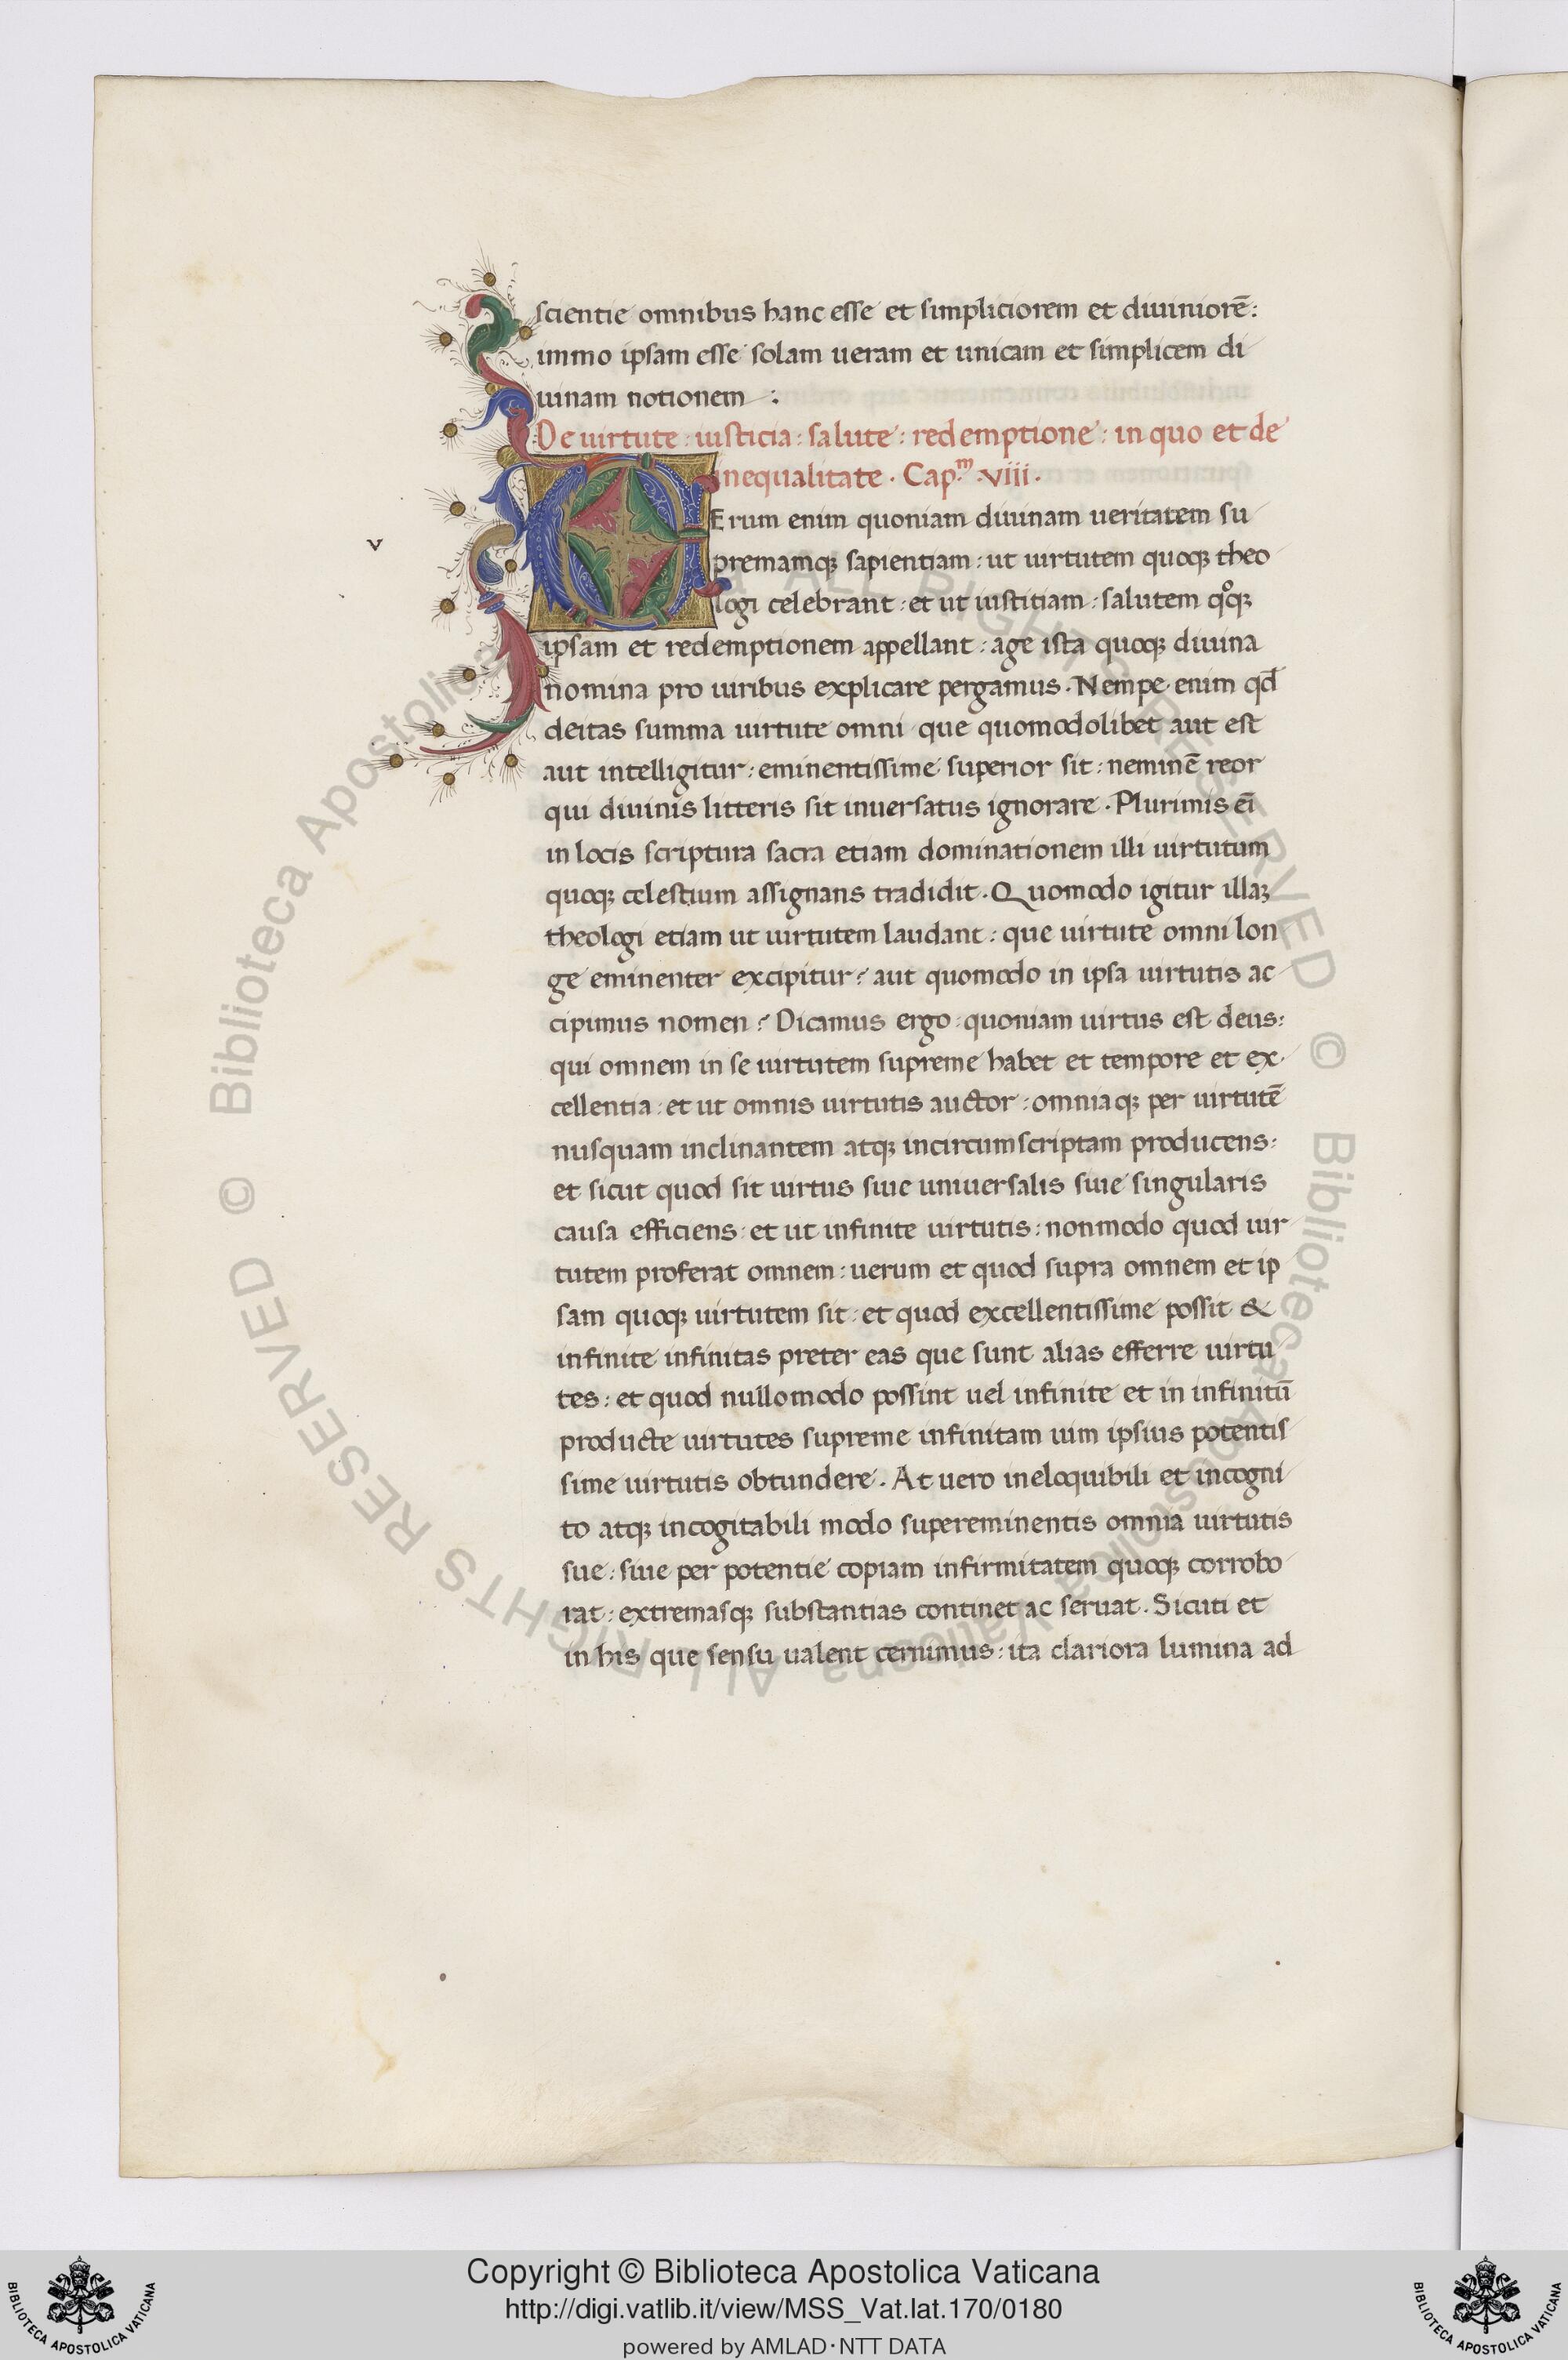 scientie omnibus hanc esse et simpliciorem et diuiniorē:
immo ipsam esse solam ueram et unicam et simplicem di
uinam notionem :
De uirtute: iusticia: salute: redemptione: in quo et de
inequalitate. Cap.ᵐ .viii.
v
Erum enim quoniam diuinam ueritatem su
premamqꝫ sapientiam: ut uirtutem quoqꝫ theo
logi celebrant: et ut iustitiam: salutem qͦqꝫ
ipsam et redemptionem appellant: age ista quoqꝫ diuina
nomina pro uiribus explicare pergamus. Nempe enim qd̄
deitas summa uirtute omni que quomodolibet aut est
aut intelligitur: eminentissime superior sit: neminē reor
qui diuinis litteris sit inuersatus ignorare. Plurimis eī
in locis scriptura sacra etiam dominationem illi uirtutum
quoqꝫ celestium assignans tradidit. Quomodo igitur illaꝫ
theologi etiam ut uirtutem laudant: que uirtute omni lon
ge eminenter excipitur? aut quomodo in ipsa uirtutis ac
cipimus nomen? Dicamus ergo: quoniam uirtus est deus:
qui omnem in se uirtutem supreme habet et tempore et ex
cellentia: et ut omnis uirtutis auctor: omniaqꝫ per uirtutē
nusquam inclinantem atqꝫ incircumscriptam producens:
et sicut quod sit uirtus siue uniuersalis siue singularis
causa efficiens: et ut infinite uirtutis: nonmodo quod uir
tutem proferat omnem: uerum et quod supra omnem et ip
sam quoqꝫ uirtutem sit: et quod excellentissime possit &
infinite infinitas preter eas que sunt alias efferre uirtu
tes: et quod nullomodo possint uel infinite et in infinitū
producte uirtutes supreme infinitam uim ipsius potentis
sime uirtutis obtundere. At uero ineloquibili et incogni
to atqꝫ incogitabili modo supereminentis omnia uirtutis
sue: siue per potentie copiam infirmitatem quoqꝫ corrobo
rat: extremasqꝫ substantias continet ac seruat. Sicuti et
in his que sensu ualent cernimus: ita clariora lumina ad
© Biblioteca Apostolica Vaticana ALL RIGHTS RESERVED © Biblioteca Apostolica Vaticana ALL RIGHTS RESERVED
Copyright © Biblioteca Apostolica Vaticana
http://digi.vatlib.it/view/MSS_Vat.lat.170/0180
powered by AMLAD·NTT DATA
BIBLIOTECA APOSTOLICA VATICANA
BIBLIOTECA APOSTOLICA VATICANA